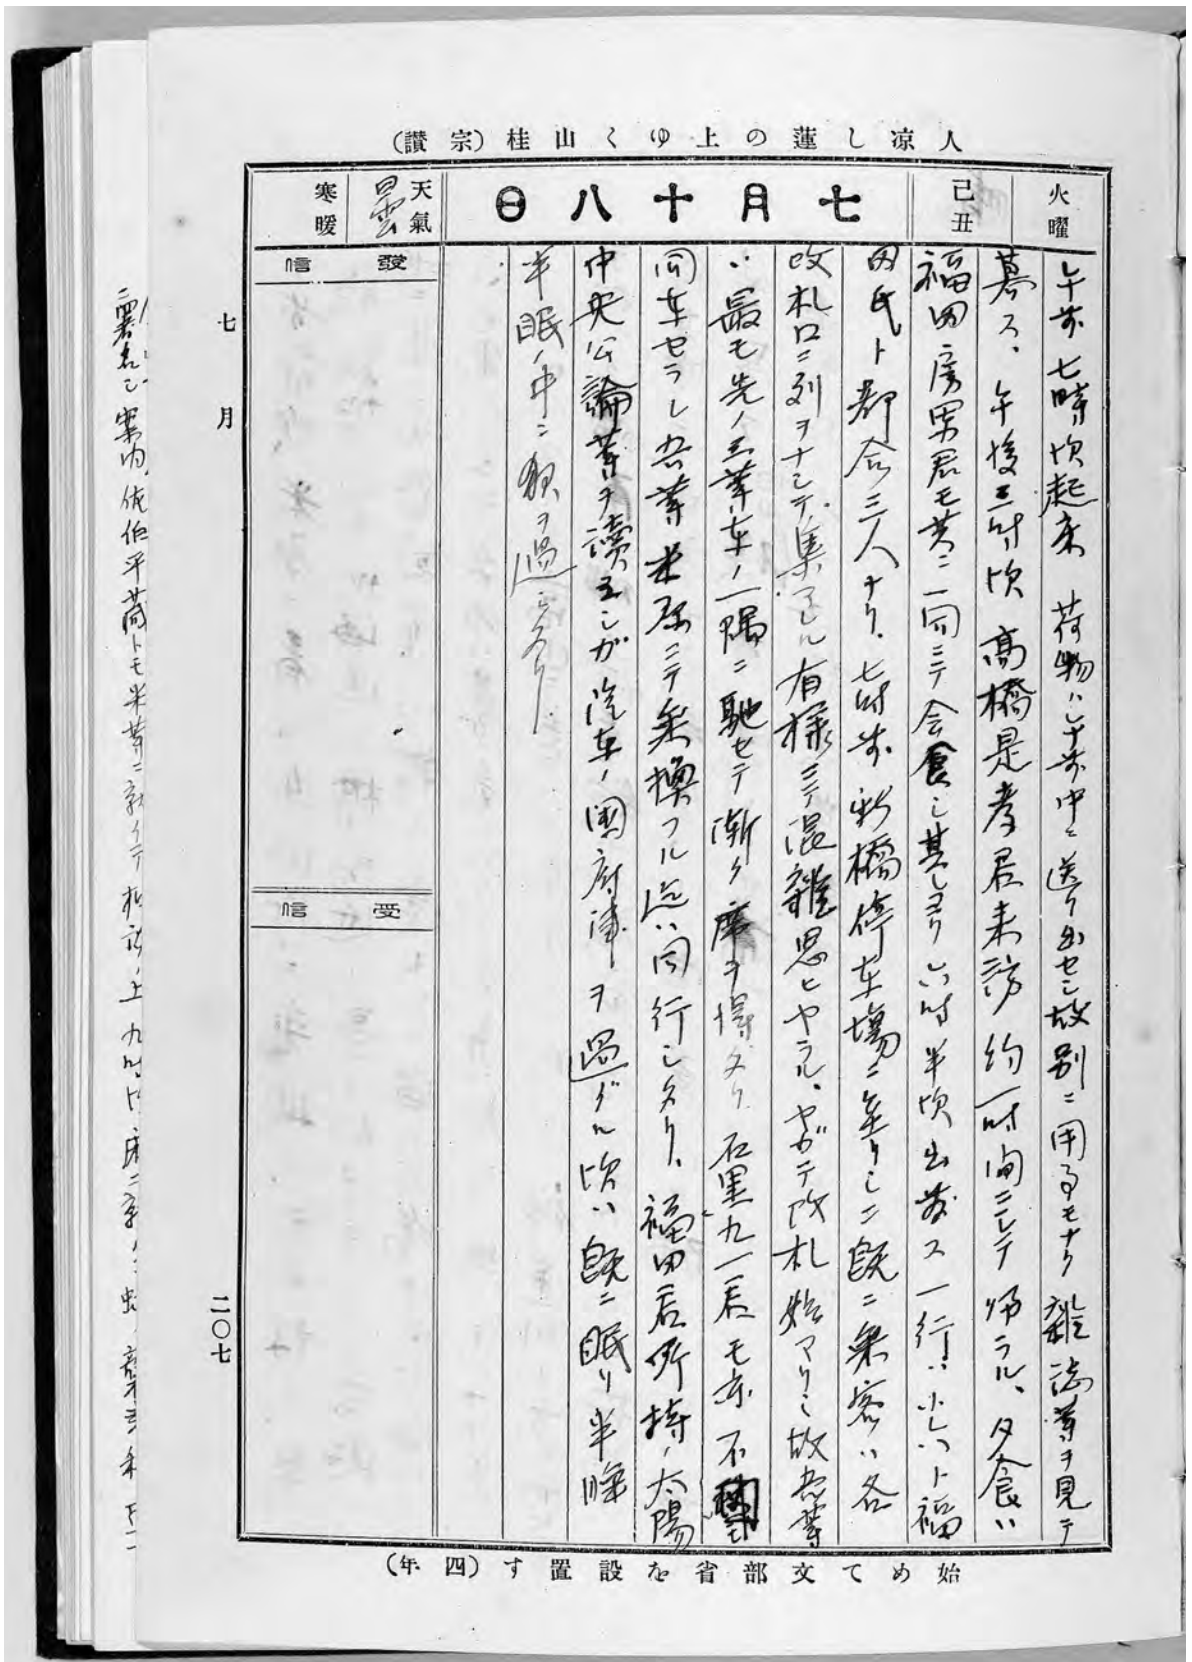 人凉し蓮の上ゆく山桂（宗讃）
火曜
己丑
七月十八日
天氣
曇
寒暖
發信
受信
午前七時頃起床 荷物ハ午前中ニ送リ出セシ故別ニ用事モナク 雑誌等ヲ見テ
暮ス、午後三時頃 高橋是孝君来訪 約一時間ニシテ 帰ラル、夕食ハ
福田房男君モ共ニ一同ニテ会食シ其レヨリ六時半頃出発ス 一行ハ 福
田氏ト都合三人ナリ、七時前新橋停車場ニ至リシニ 既ニ乗客ハ各
改札口ニ列ヲナシテ集マレル有様ニテ混雑思ヒヤラル、ヤガテ改札始マリシ故吾等
ハ最モ先ノ三等車ノ一隅ニ馳セテ漸ク席ヲ得タリ 石黒九一君モ亦不
同車セラレ吾等米原ニテ乗換フル迄ハ同行シタリ、福田君所持ノ太陽
中央公論等ヲ讀ミシガ 汽車ノ國府津ヲ過グル頃ハ既ニ眠リ半睡
半眠ノ中ニ夜ヲ過シタリ
始めて文部省を設置す（四年）
七月
二〇七
案内、佐伯平蔵トモ